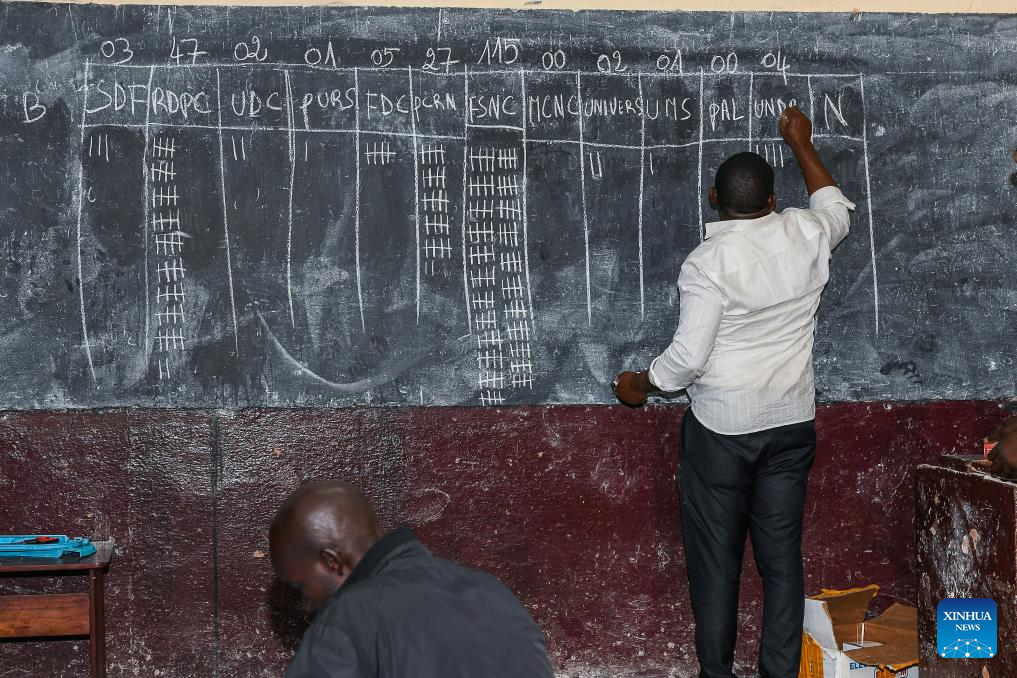 03 47 02 01 05 27 115 00 02 01 00 04
B SDF RDPC UDC PURS FDC PCRN FSNC MCNC UNIVERS UMS PAL UNDP N
XINHUA
NEWS